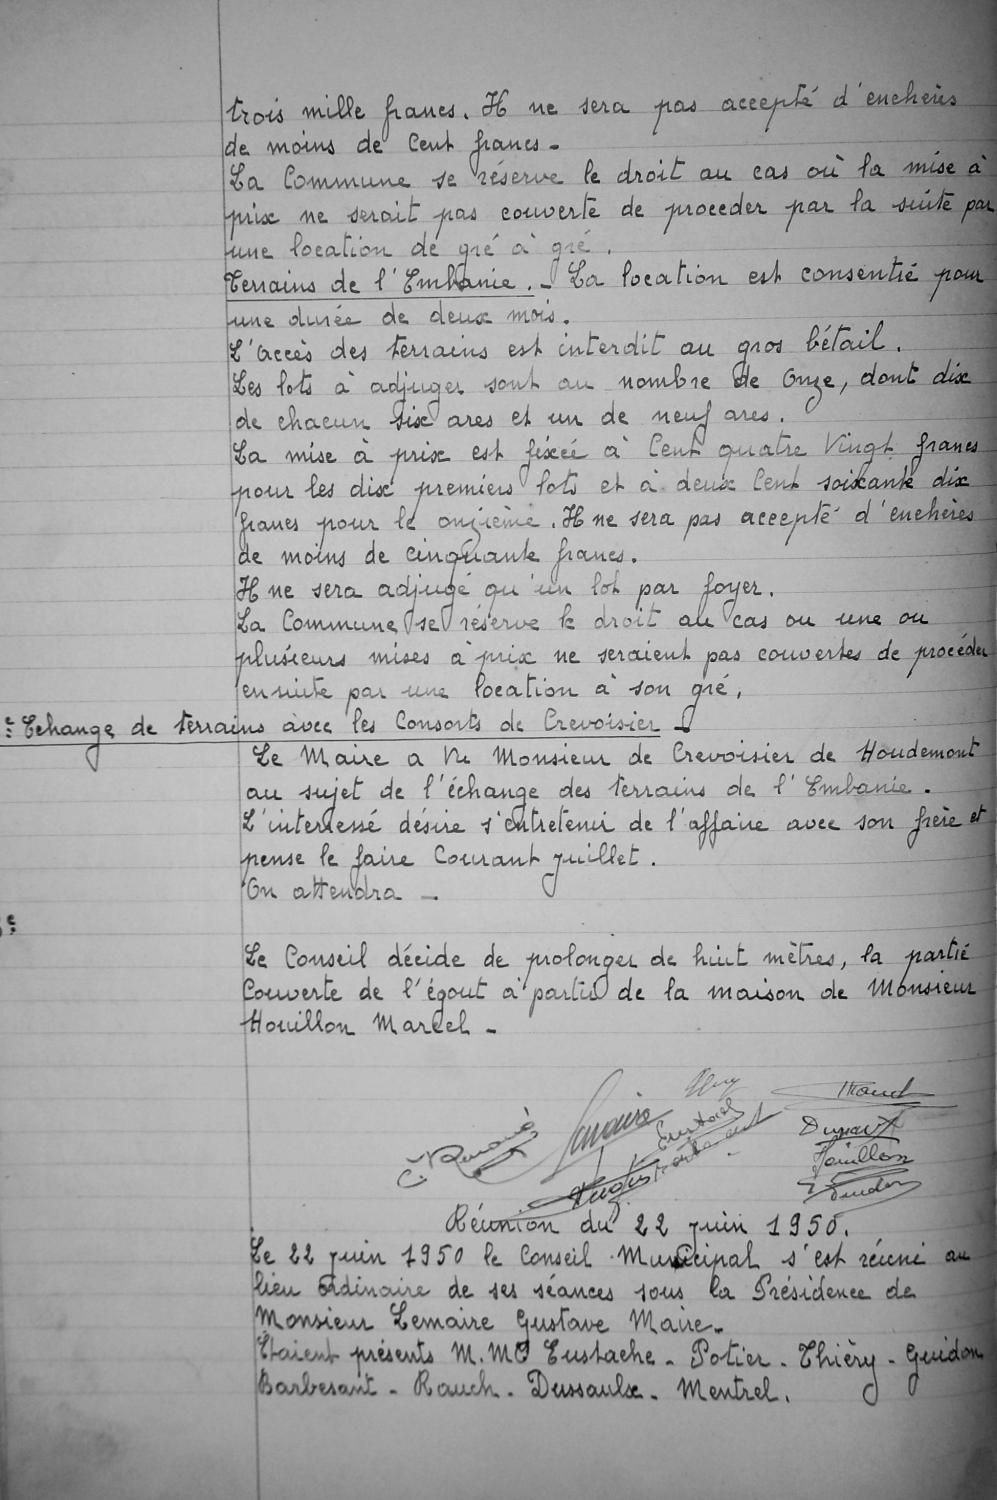 trois mille francs. Il ne sera pas accepté d'enchères
de moins de Cent francs -
La Commune se réserve le droit au cas où la mise à
prix ne serait pas couverte de proceder par la suite par
une location de gré à gré.
Terrains de l'Embanie. - La location est consentie pour
une durée de deux mois.
L'accès des terrains est interdit au gros bétail.
Les lots à adjuger sont au nombre de Onze, dont dix
de chacun six ares et un de neuf ares.
La mise à prix est fixée à Cent quatre Vingt francs
pour les dix premiers lots et à deux Cent soixante dix
francs pour le onzième. Il ne sera pas accepté d'enchères
de moins de cinquante francs.
Il ne sera adjugé qu'un lot par foyer.
La Commune se réserve le droit au cas ou une ou
plusieurs mises à prix ne seraient pas couvertes de procéder
ensuite par une location à son gré.
Echange de terrains avec les Consorts de Crevoisier -
Le Maire a Vu Monsieur de Crevoisier de Houdemont
au sujet de l'échange des terrains de l'Embanie.
L'interressé désire s'entretenir de l'affaire avec son frère et
pense le faire Courant Juillet.
On attendra -
Le Conseil décide de prolonger de huit mètres, la partie
Couverte de l'égout à partir de la maison de Monsieur
Houillon Marcel -
Houillon
Réunion du 22 juin 1950.
Le 22 juin 1950 le Conseil Municipal s'est réuni au
lieu ordinaire de ses séances sous la Présidence de
Monsieur Lemaire Gustave Maire -
Etaient présents M.M. Eustache - Potier - Thiéry - Guidon
Barbesant - Rauch - Dussaulx - Mentrel.